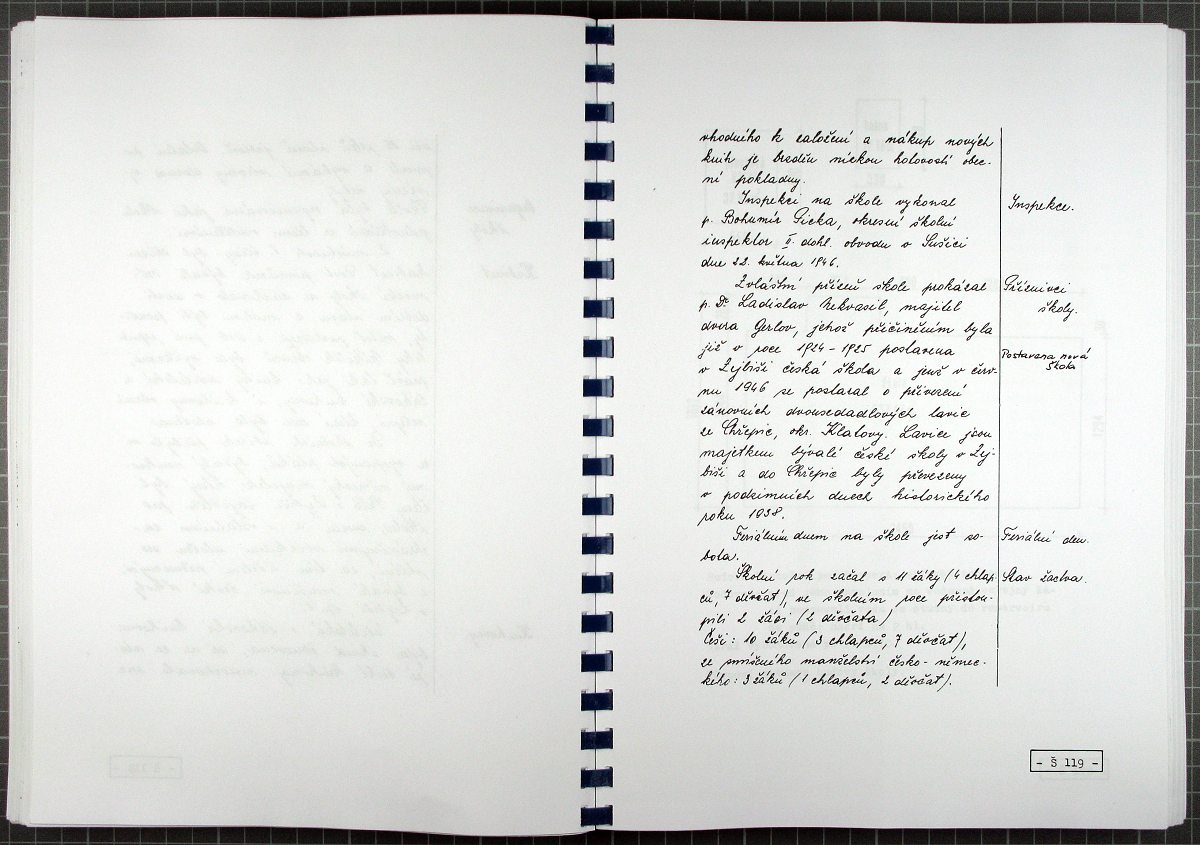 vhodného k založení a nákup nových
knih je brzděn nízkou hotovostí obec-
ní pokladny.
Inspekci na škole vykonal
Inspekce.
p. Bohumír Cicka, okresní školní
inspektor II. dohl. obvodu v Sušici
dne 22. května 1946.
Zvláštní přízeň škole prokázal
Příznivci
školy.
p. Dr Ladislav Nekvasil, majitel
dvora Gerlov, jehož přičiněním byla
již v roce 1924 - 1925 postavena
Postavena nová
škola
v Zejbiši česká škola a jenž v červ-
nu 1946 se postaral o přivezení
zánovních dvousedadlových lavic
ze Chřepic, okr. Klatovy. Lavice jsou
majetkem bývalé české školy v Zej-
biši a do Chřepic byly převezeny
v podzimních dnech historického
roku 1938.
Feriálním dnem na škole jest so-
Feriální den.
bota.
Školní rok začal s 11 žáky (4 chlap-
Stav žactva.
ců, 7 děvčat), ve školním roce přistou-
pili 2 žáci (2 děvčata)
Češi: 10 žáků (3 chlapců, 7 děvčat),
ze smíšeného manželství česko-němec-
kého: 3 žáků (1 chlapců, 2 děvčat).
- Š 119 -